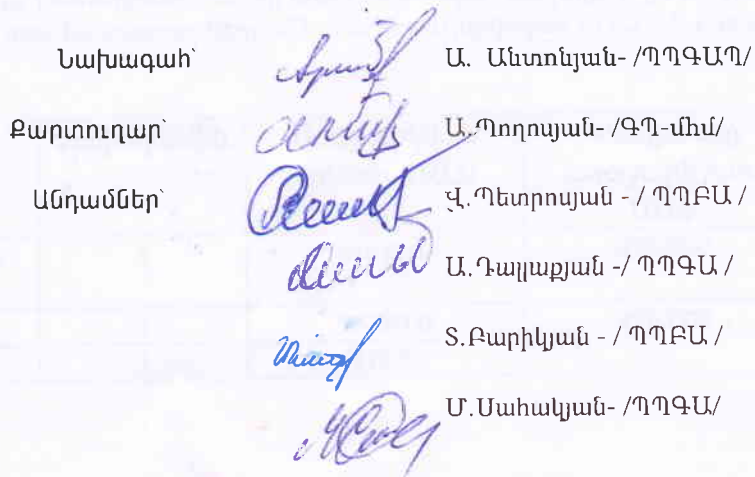 Նախագահ՝ Ա. Անտոնյան- /ՊՊԳԱՊ/
Քարտուղար՝ Ա.Պողոսյան- /ԳՊ-մհմ/
Անդամներ՝ Վ.Պետրոսյան - / ՊՊԲԱ /
Ա.Դալլաքյան -/ ՊՊԳԱ /
Տ.Բարիկյան - / ՊՊԲԱ /
Մ.Սահակյան- /ՊՊԳԱ/